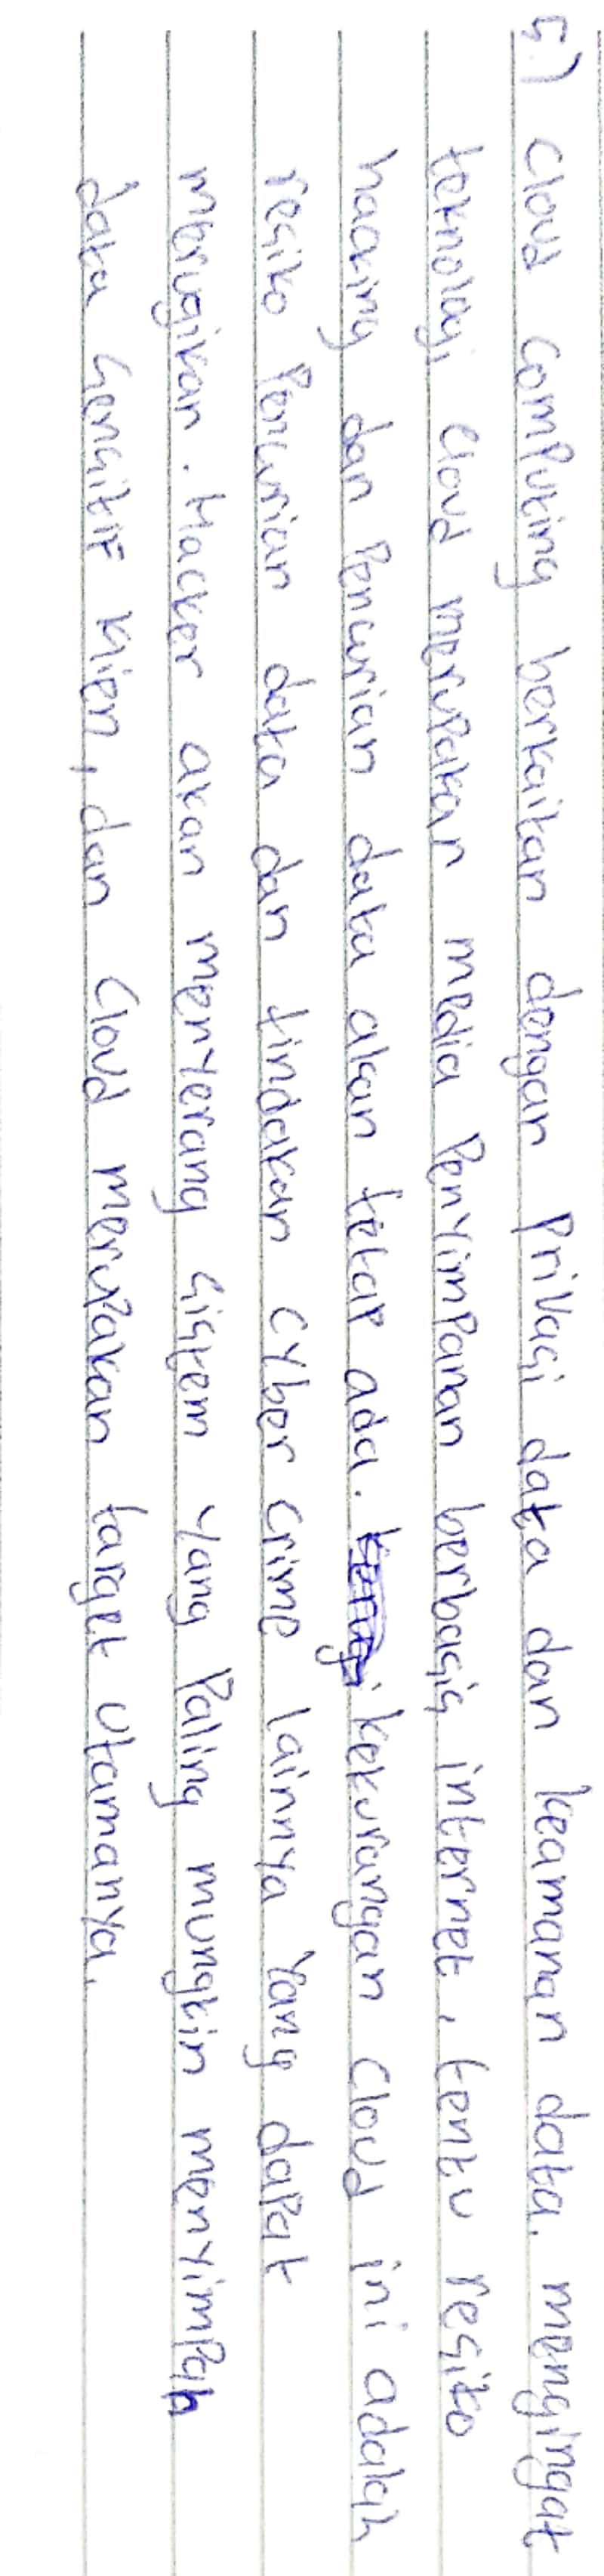 5.) Cloud Computing berkaitan dengan Privasi data dan keamanan data. mengingat
teknologi cloud merupakan media Penyimpanan berbasis internet, tentu resiko
hacking dan Pencurian data akan tetap ada. kekurangan cloud ini adalah
resiko Pencurian data dan tindakan cyber crime lainnya yang dapat
merugikan. Hacker akan menyerang sistem yang Paling mungkin menyimpan
data sensitif klien, dan cloud merupakan target utamanya.